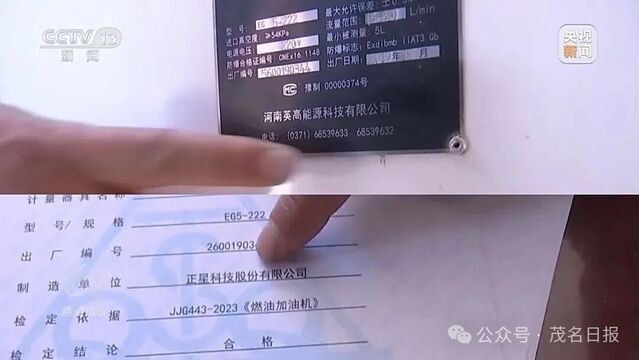 CCTV 13
新闻
央视
新闻
最大允许误差:
型 号: EG 5-222
流量范围:
进口真空度: ≥54KPa
最小被测量: 5L
电源电压: 220V
防爆标志: Exdibmb IIAT3 Gb
防爆合格证编号: CNEx16.1148
出厂日期:
出厂编号: 5600190344
MC 豫制 00000374号
河南英高能源科技有限公司
电话: (0371) 68539633 68539632
计量器具名称
型号/规格 EG5-222
出厂编号 26001903
制造单位 正星科技股份有限公司
检定依据 JJG443-2023《燃油加油机》
检定结论 合格
公众号·茂名日报